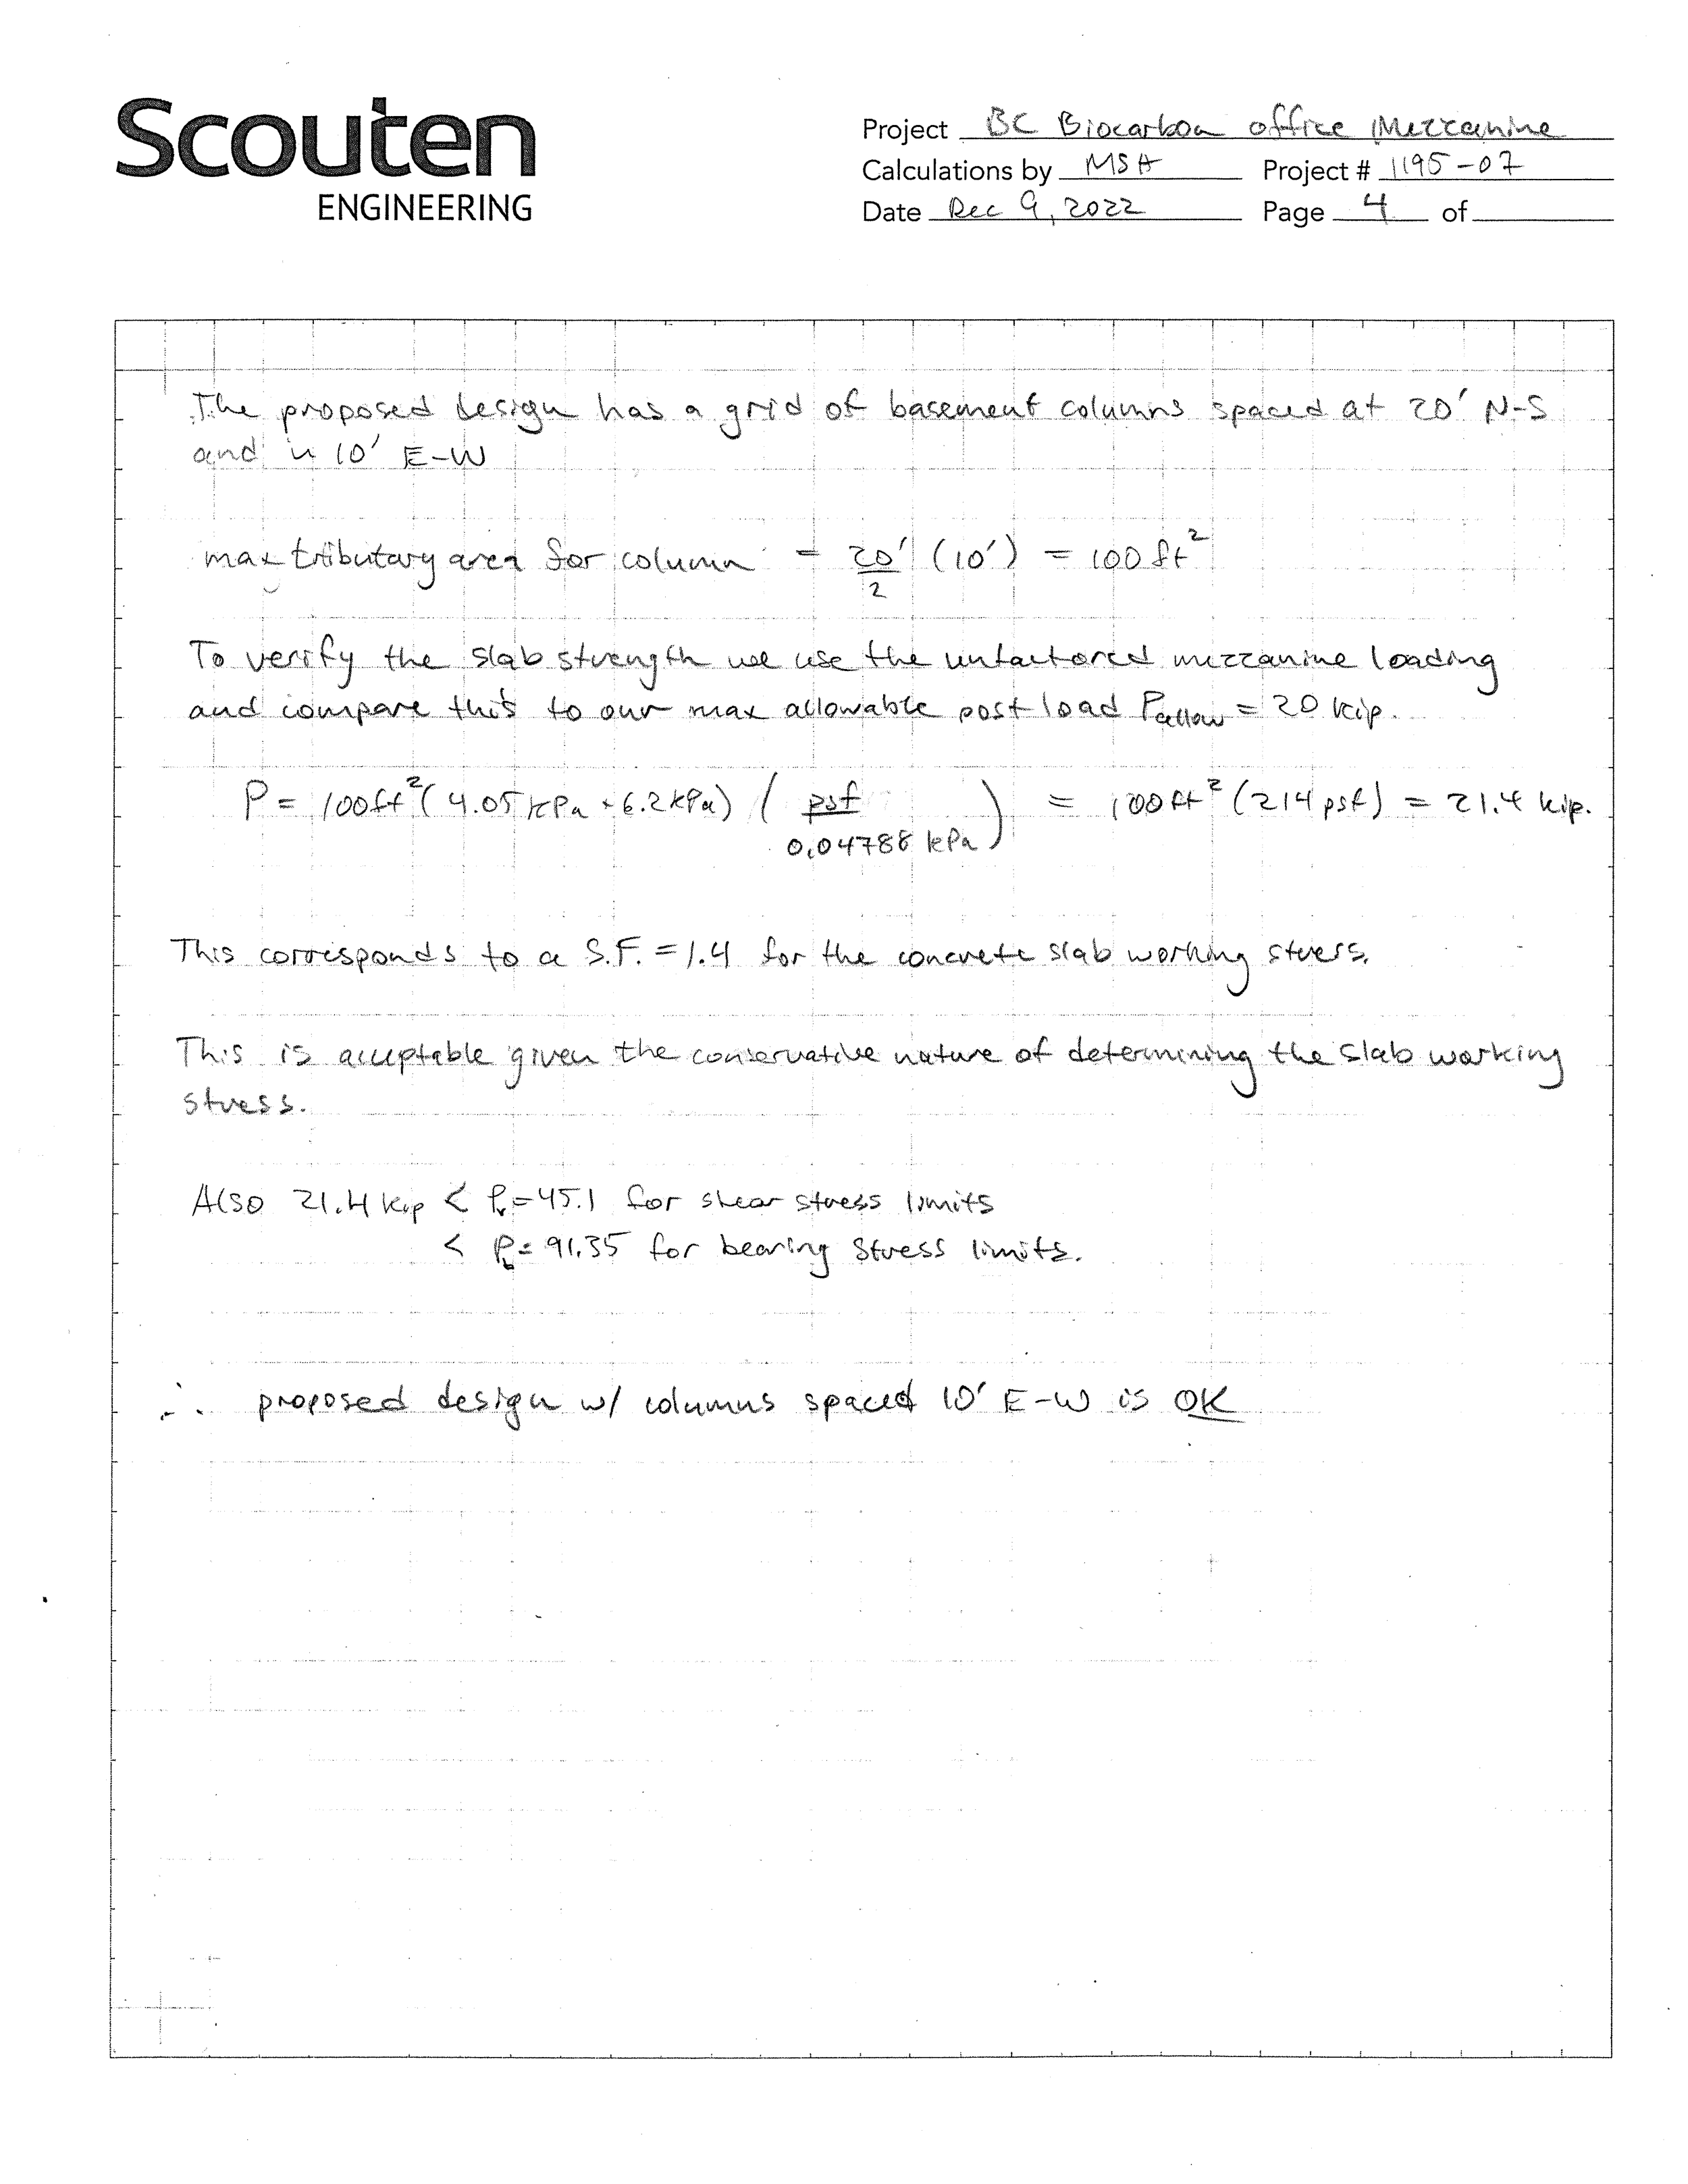 Scouten
ENGINEERING
Project BC Biocarbon office Mezzanine
Calculations by MSA Project # 1195-07
Date Dec 9, 2022 Page 4 of
The proposed design has a grid of basement columns spaced at 20' N-S
and 10' E-W
max tributary area for column = 20'/2 (10') = 100 ft²
To verify the slab strength we use the unfactored mezzanine loading
and compare this to our max allowable post load Pallow = 20 kip.
P = 100ft² (4.05 kPa + 6.2 kPa) (psf/0.04788 kPa) = 100 ft² (214 psf) = 21.4 kip.
This corresponds to a S.F. = 1.4 for the concrete slab working stress.
This is acceptable given the conservative nature of determining the slab working
stress.
Also 21.4 kip < Pv = 45.1 for shear stress limits
< Pb = 91.35 for bearing stress limits.
∴ proposed design w/ columns spaced 10' E-W is OK